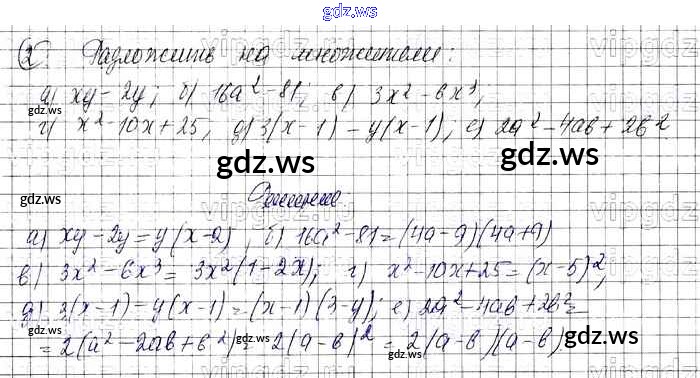 gdz.ws
2 Разложить на множители:
а) xy - 2y; б) 16a² - 81; в) 3x² - 6x³;
г) x² - 10x + 25; д) 3(x - 1) - y(x - 1); е) 2a² - 4ab + 2b².
gdz.ws
gdz.ws
gdz.ws
Решение.
а) xy - 2y = y(x - 2) б) 16a² - 81 = (4a - 9)(4a + 9)
в) 3x² - 6x³ = 3x²(1 - 2x); г) x² - 10x + 25 = (x - 5)²;
д) 3(x - 1) = y(x - 1) = (x - 1)(3 - y); е) 2a² - 4ab + 2b² =
= 2(a² - 2ab + b²) = 2(a - b)² = 2(a - b)(a - b)
gdz.ws
gdz.ws
gdz.ws